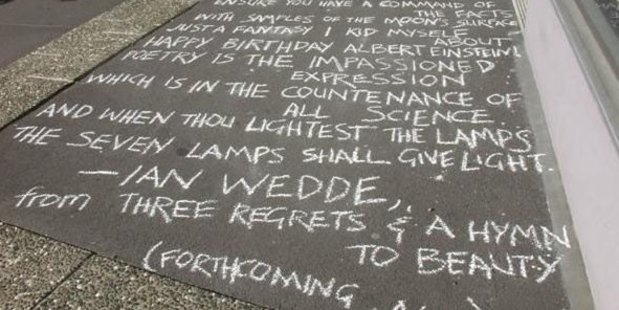 ENSURE YOU HAVE A COMMAND OF
THE FACTS
WITH SAMPLES OF THE MOON'S SURFACE
JUST A FANTASY I KID MYSELF
ABOUT
HAPPY BIRTHDAY ALBERT EINSTEIN!
POETRY IS THE IMPASSIONED
EXPRESSION
WHICH IS IN THE COUNTENANCE OF
ALL SCIENCE.
AND WHEN THOU LIGHTEST THE LAMPS
THE SEVEN LAMPS SHALL GIVE LIGHT.
—IAN WEDDE,
from THREE REGRETS & A HYMN
TO BEAUTY
(FORTHCOMING